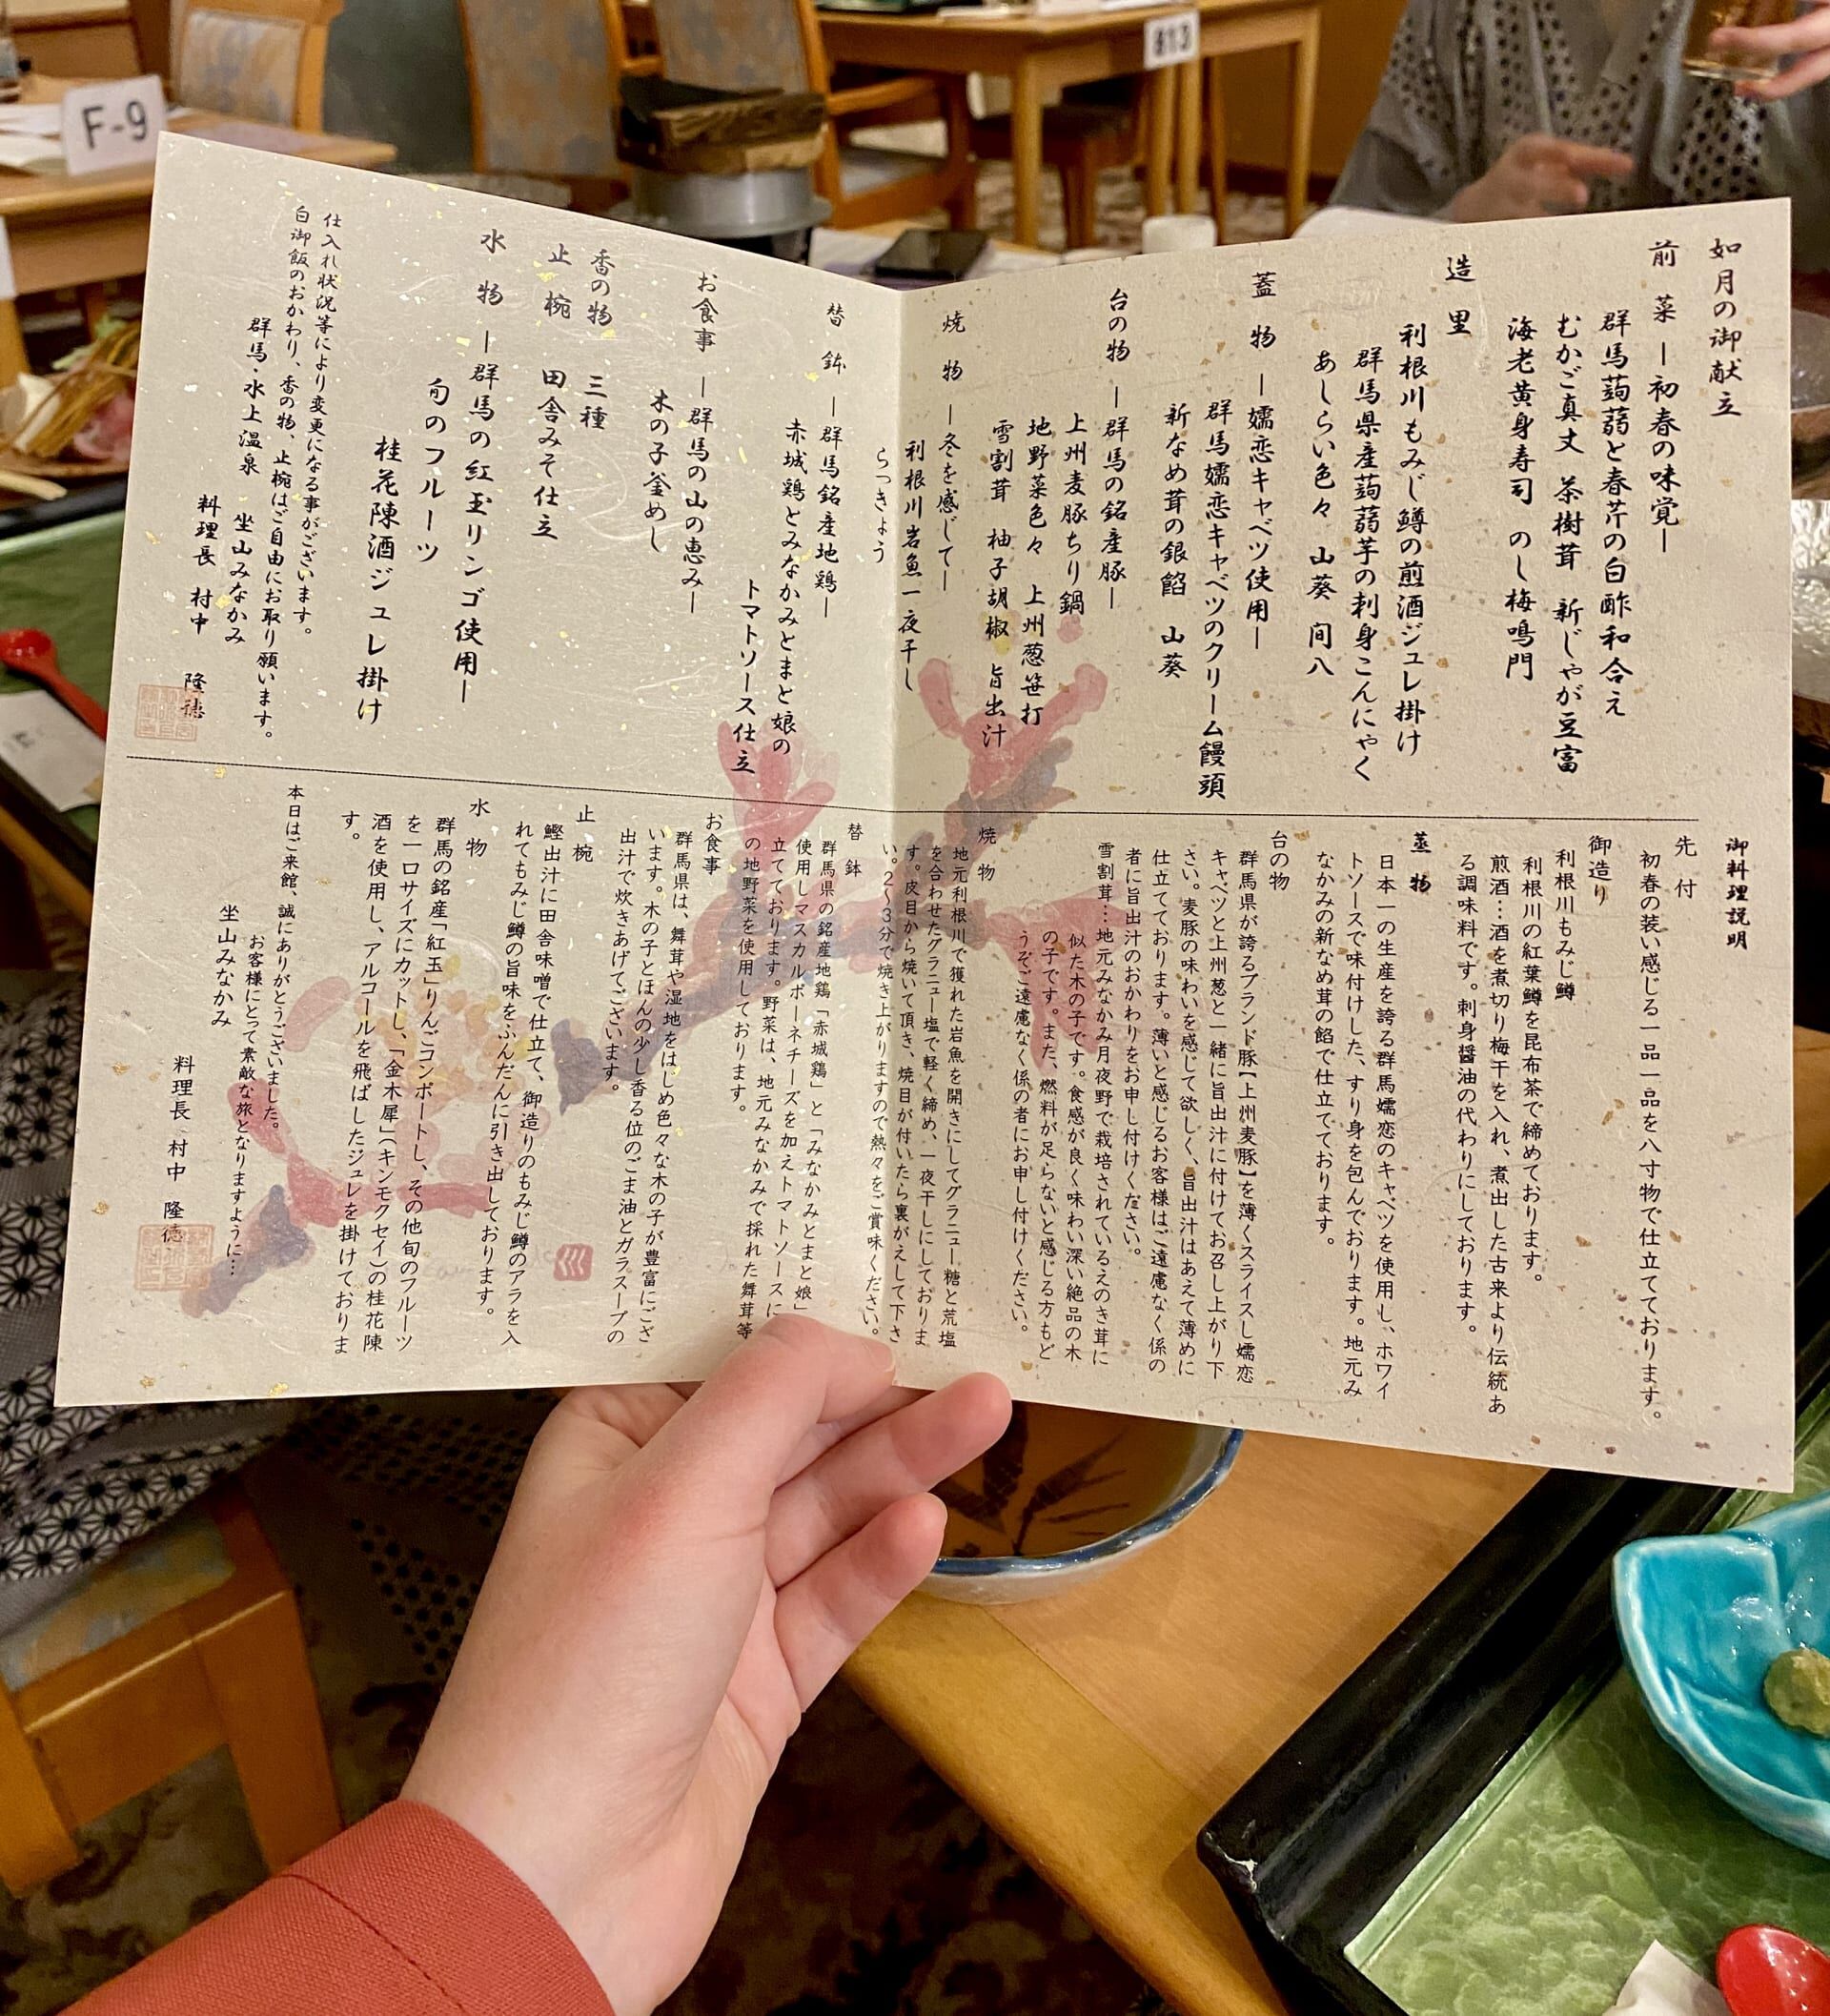 F-9
813
如月の御献立
前菜 ―初春の味覚―
群馬蒟蒻と春芹の白酢和合え
むかご真丈 茶樹茸 新じゃが豆富
海老黄身寿司 のし梅鳴門
造里
利根川もみじ鱒の煎酒ジュレ掛け
群馬県産蒟蒻芋の刺身こんにゃく
あしらい色々 山葵 間八
蓋物 ―嬬恋キャベツ使用―
群馬嬬恋キャベツのクリーム饅頭
新なめ茸の銀餡 山葵
台の物 ―群馬の銘産豚―
上州麦豚ちり鍋
地野菜色々 上州葱笹打
雪割茸 柚子胡椒 旨出汁
焼物 ―冬を感じて―
利根川岩魚一夜干し
らっきょう
替鉢 ―群馬銘産地鶏―
赤城鶏とみなかみとまと娘の
トマトソース仕立
お食事 ―群馬の山の恵み―
木の子釜めし
香の物 三種
止椀 田舎みそ仕立
水物 ―群馬の紅玉リンゴ使用―
旬のフルーツ
桂花陳酒ジュレ掛け
仕入れ状況等により変更になる事がございます。
白御飯のおかわり、香の物、止椀はご自由にお取り願います。
群馬・水上温泉 坐山みなかみ
料理長 村中 隆穂
御料理説明
先付
初春の装い感じる一品一品を八寸物で仕立てております。
御造り
利根川もみじ鱒
利根川の紅葉鱒を昆布茶で締めております。
煎酒…酒を煮切り梅干を入れ、煮出した古来より伝統あ
る調味料です。刺身醤油の代わりにしております。
蒸物
日本一の生産を誇る群馬嬬恋のキャベツを使用し、ホワイ
トソースで味付けした、すり身を包んでおります。地元み
なかみの新なめ茸の餡で仕立てております。
台の物
群馬県が誇るブランド豚【上州麦豚】を薄くスライスし嬬恋
キャベツと上州葱と一緒に旨出汁に付けてお召し上がり下
さい。麦豚の味わいを感じて欲しく、旨出汁はあえて薄めに
仕立てております。薄いと感じるお客様はご遠慮なく係の
者に旨出汁のおかわりをお申し付けください。
雪割茸…地元みなかみ月夜野で栽培されているえのき茸に
似た木の子です。食感が良く味わい深い絶品の木
の子です。また、燃料が足らないと感じる方もど
うぞご遠慮なく係の者にお申し付けください。
焼物
地元利根川で獲れた岩魚を開きにしてグラニュー糖と荒塩
を合わせたグラニュー塩で軽く締め、一夜干しにしておりま
す。皮目から焼いて頂き、焼目が付いたら裏がえして下さ
い。2〜3分で焼き上がりますので熱々をご賞味ください。
替鉢
群馬県の銘産地鶏「赤城鶏」と「みなかみとまと娘」
使用しマスカルポーネチーズを加えトマトソースに
立てております。野菜は、地元みなかみで採れた舞茸等
の地野菜を使用しております。
お食事
群馬県は、舞茸や湿地をはじめ色々な木の子が豊富にござ
います。木の子とほんの少し香る位のごま油とガラスープの
出汁で炊きあげてございます。
止椀
鰹出汁に田舎味噌で仕立て、御造りのもみじ鱒のアラを入
れてもみじ鱒の旨味をふんだんに引き出しております。
水物
群馬の銘産「紅玉」りんごコンポートし、その他旬のフルーツ
を一口サイズにカットし、「金木犀」(キンモクセイ)の桂花陳
酒を使用し、アルコールを飛ばしたジュレを掛けておりま
す。
本日はご来館、誠にありがとうございました。
お客様にとって素敵な旅となりますように…
坐山みなかみ
料理長 村中 隆徳